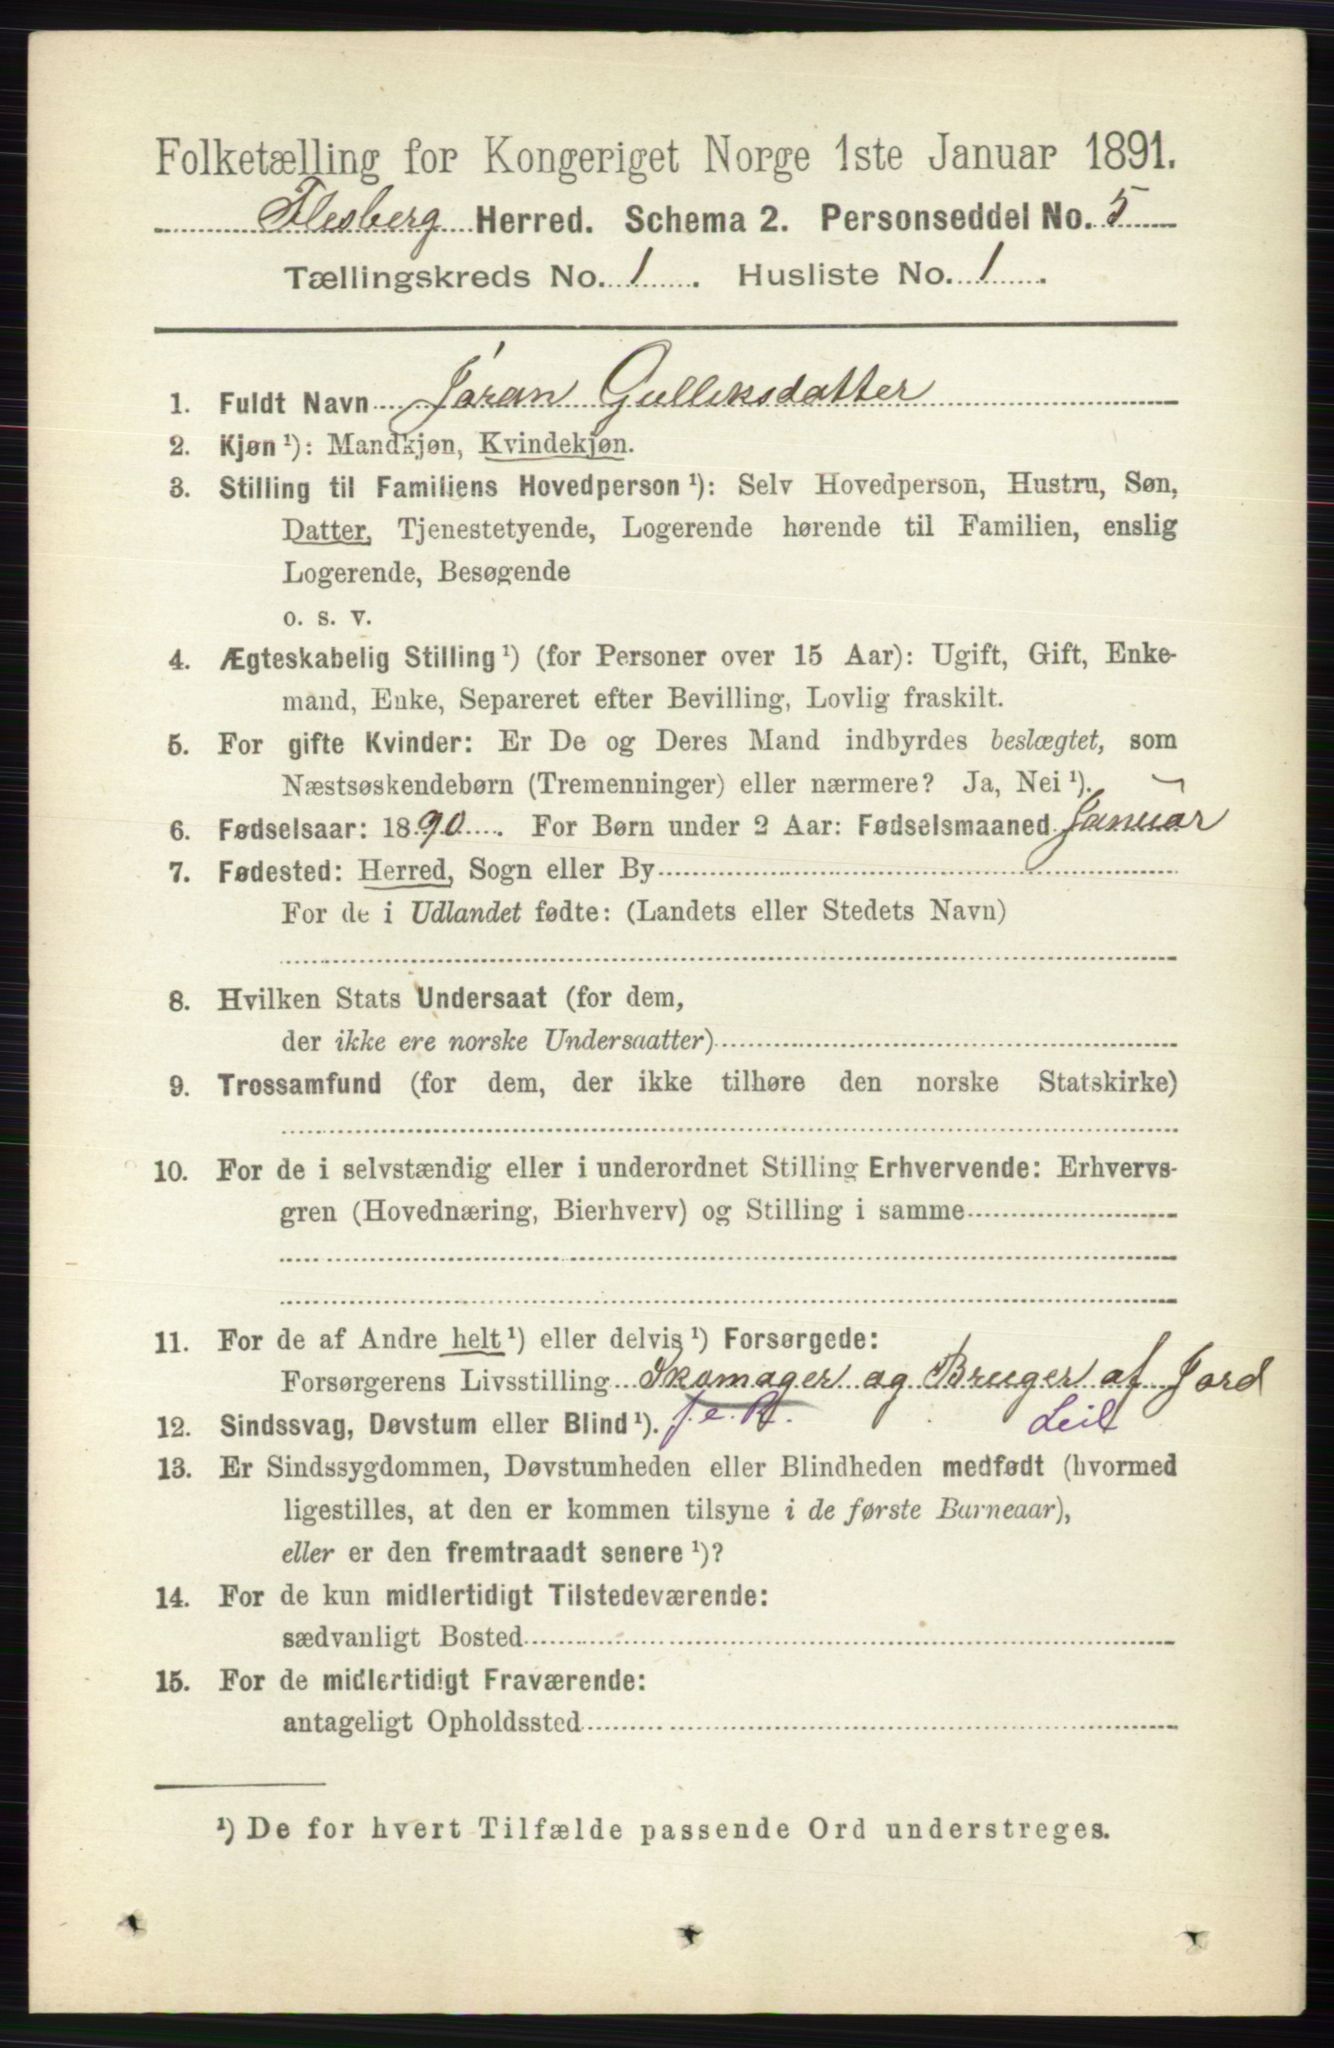 Folketælling for Kongeriget Norge 1ste Januar 1891.
Flesberg Herred. Schema 2. Personseddel No. 5
Tællingskreds No. 1. Husliste No. 1.
1. Fuldt Navn Jøran Gulliksdatter
2. Kjøn ¹): Mandkjøn, Kvindekjøn.
3. Stilling til Familiens Hovedperson ¹): Selv Hovedperson, Hustru, Søn,
Datter, Tjenestetyende, Logerende hørende til Familien, enslig
Logerende, Besøgende
o. s. v.
4. Ægteskabelig Stilling ¹) (for Personer over 15 Aar): Ugift, Gift, Enke-
mand, Enke, Separeret efter Bevilling, Lovlig fraskilt.
5. For gifte Kvinder: Er De og Deres Mand indbyrdes beslægtet, som
Næstsøskendebørn (Tremenninger) eller nærmere? Ja, Nei ¹).
6. Fødselsaar: 1890. For Børn under 2 Aar: Fødselsmaaned Januar
7. Fødested: Herred, Sogn eller By
For de i Udlandet fødte: (Landets eller Stedets Navn)
8. Hvilken Stats Undersaat (for dem,
der ikke ere norske Undersaatter)
9. Trossamfund (for dem, der ikke tilhøre den norske Statskirke)
10. For de i selvstændig eller i underordnet Stilling Erhvervende: Erhvervs-
gren (Hovednæring, Bierhverv) og Stilling i samme
11. For de af Andre helt ¹) eller delvis ¹) Forsørgede:
Forsørgerens Livsstilling Skomager og Bruger af Jord
12. Sindssvag, Døvstum eller Blind ¹). Leil
13. Er Sindssygdommen, Døvstumheden eller Blindheden medfødt (hvormed
ligestilles, at den er kommen tilsyne i de første Barneaar),
eller er den fremtraadt senere ¹)?
14. For de kun midlertidigt Tilstedeværende:
sædvanligt Bosted
15. For de midlertidigt Fraværende:
antageligt Opholdssted
¹) De for hvert Tilfælde passende Ord understreges.